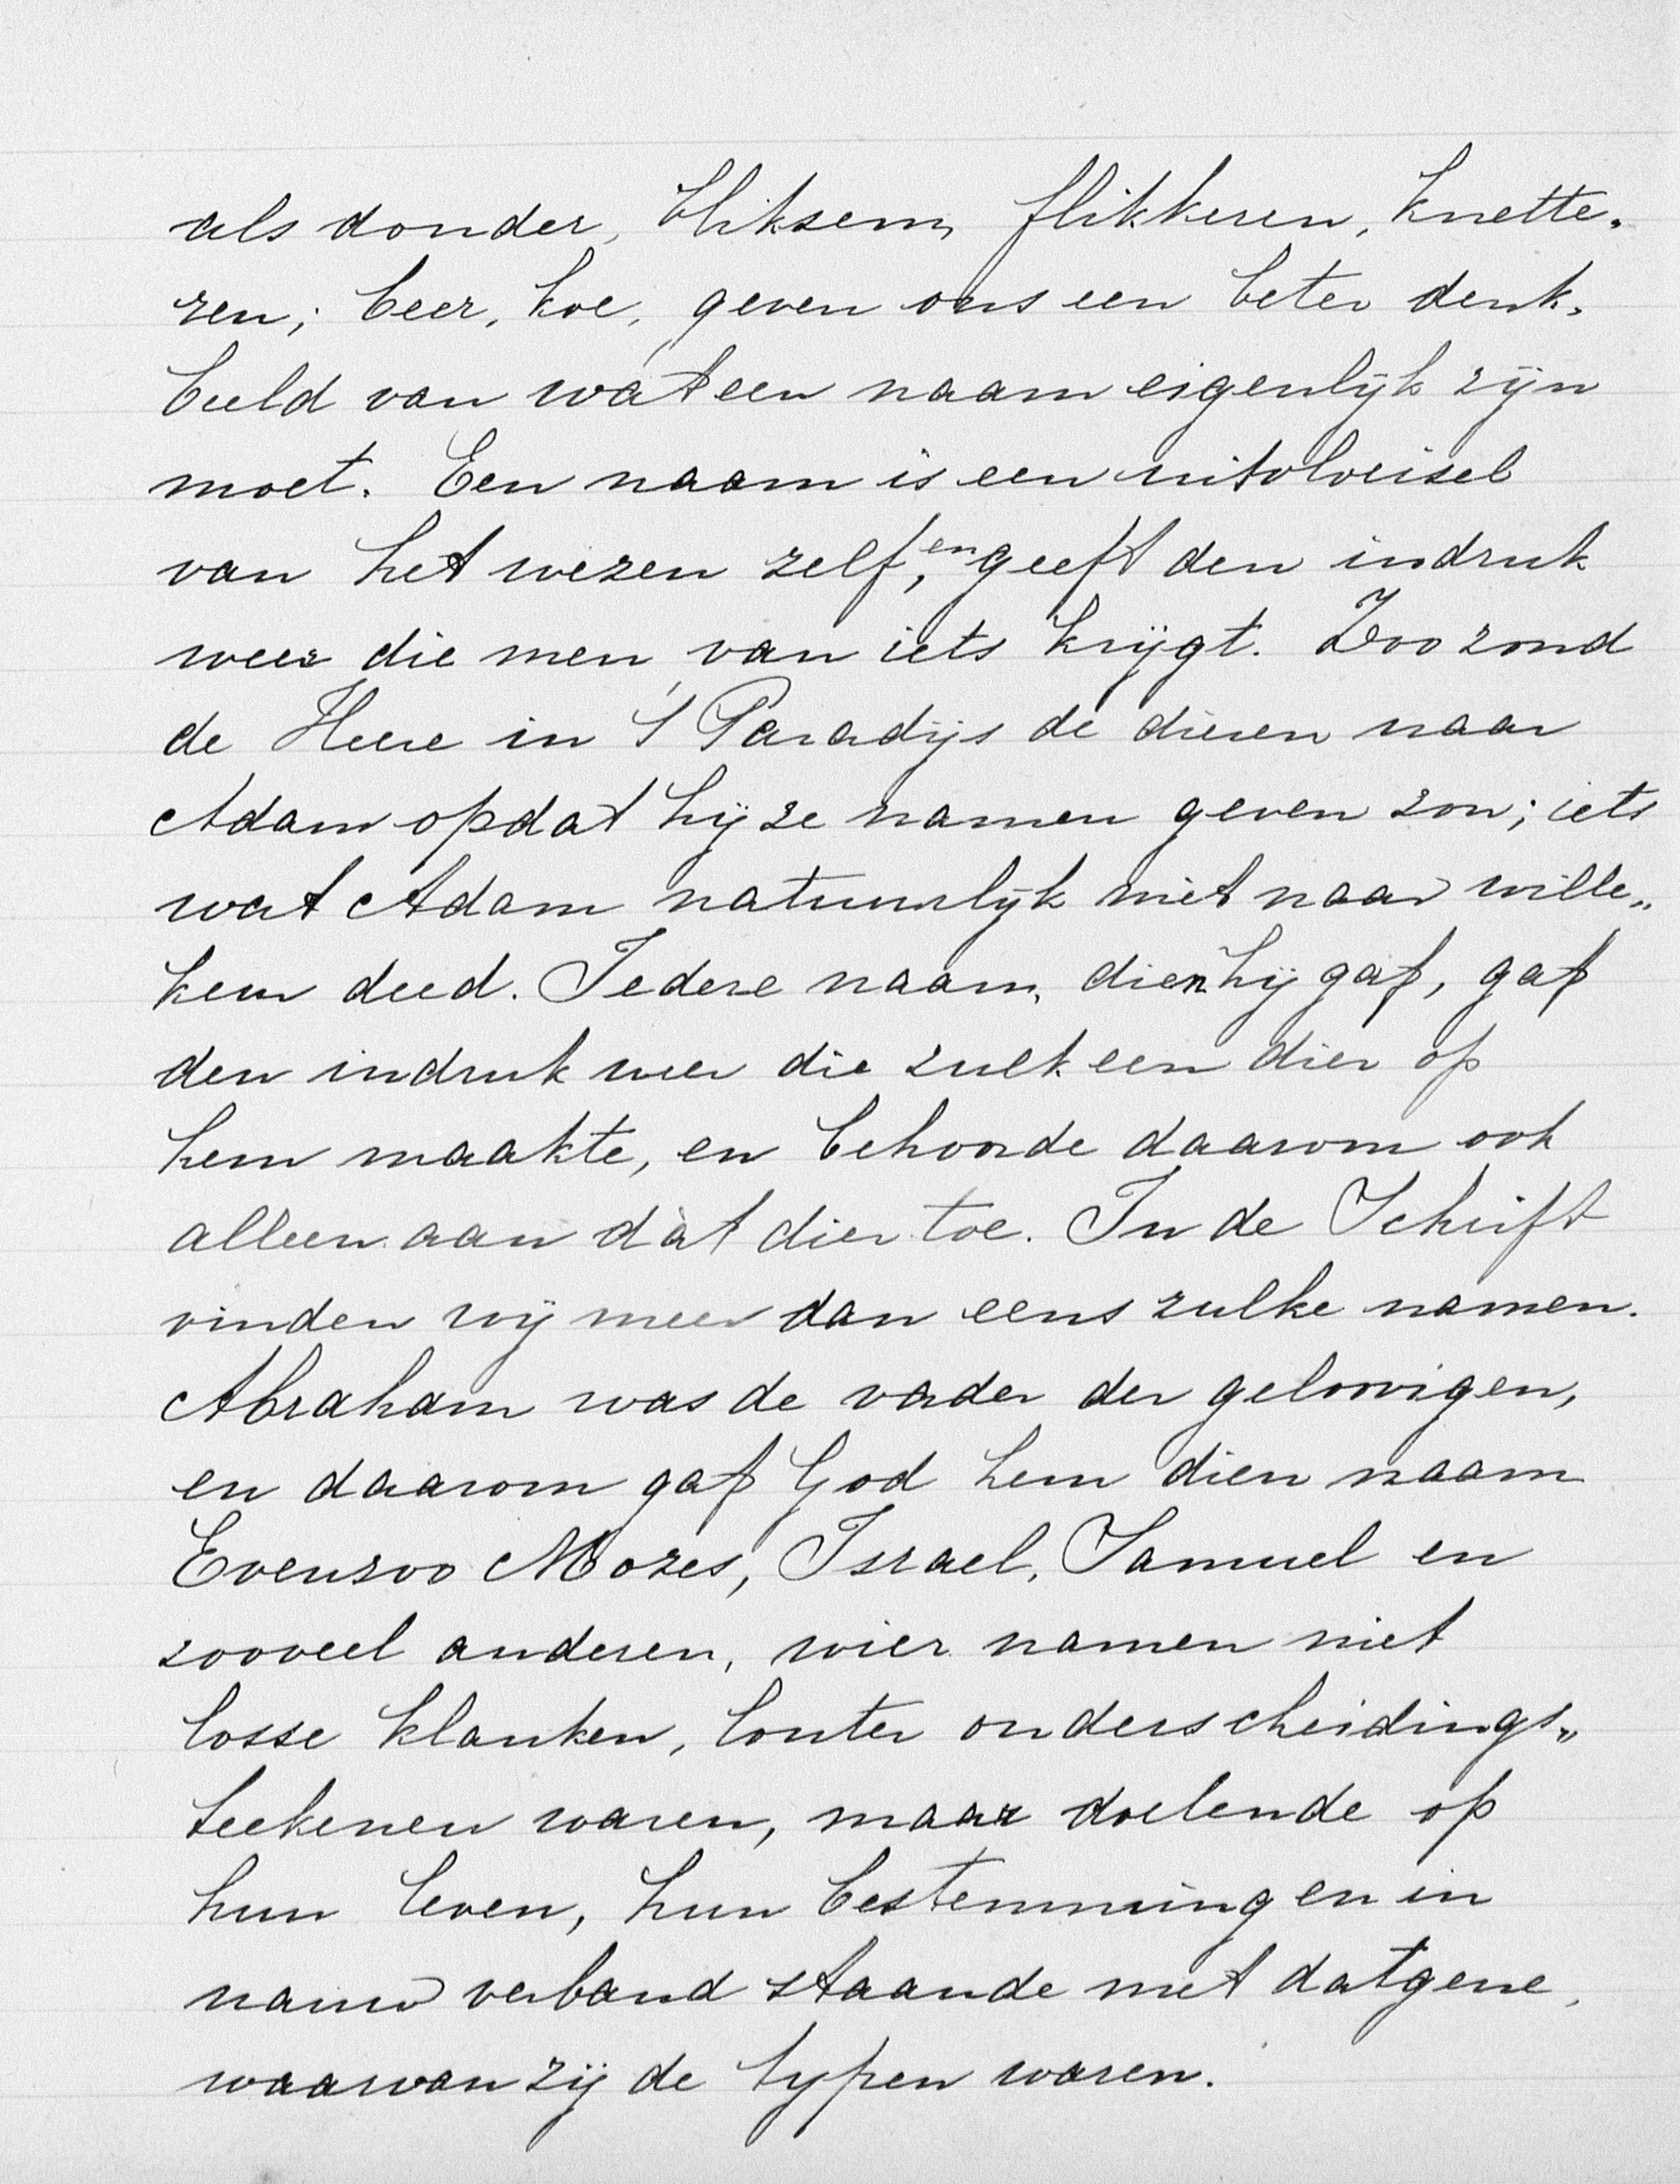 als donder, bliksem, flikkeren, knette-
ren; beer, koe, geven ons een beter denk-
beeld van wát een naam eigenlijk zijn
moet. Een naam is een uitvloeisel
van het wezen zelf, en geeft den indruk
weer die men van iets krijgt. Zoo zond
de Heere in 't Paradijs de dieren naar
Adam opdat hij ze namen geven zou; iets
wat Adam natuurlijk niet naar wille„
keur deed. Iedere naam, dien hij gaf, gaf
den indruk weer die zulk een dier op
hem maakte, en behoorde daarom ook
alleen aan dàt dier toe. In de Schrift
vinden wij meer dan eens zulke namen.
Abraham was de vader der geloovigen,
en daarom gaf God hem dien naam
Evenzoo Mozes, Israel, Samuel en
zooveel anderen, wier namen niet
losse klanken, louter onderscheidings„
teekenen waren, maar doelende op
hun leven, hun bestemming en in
nauw verband staande met datgene,
waarvan zij de typen waren.